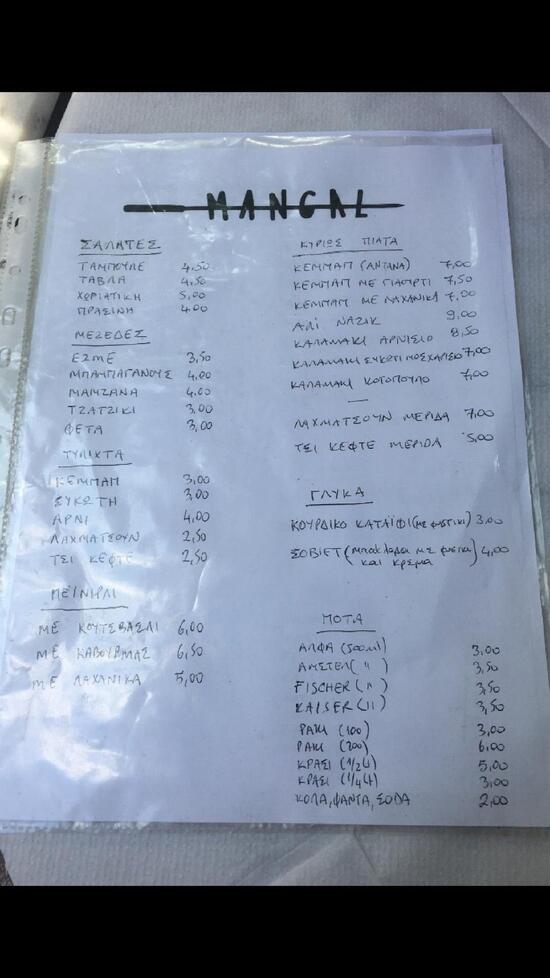 MANGAL
ΣΑΛΑΤΕΣ
ΤΑΜΠΟΥΛΕ 4,50
ΤΑΒΛΑ 4,50
ΧΩΡΙΑΤΙΚΗ 5,00
ΠΡΑΣΙΝΗ 4,00
ΜΕΖΕΔΕΣ
ΕΖΜΕ 3,50
ΜΠΑΜΠΑΓΑΝΟΥΣ 4,00
ΜΑΜΖΑΝΑ 4,00
ΤΖΑΤΖΙΚΙ 3,00
ΦΕΤΑ 3,00
ΤΥΛΙΚΤΑ
ΚΕΜΜΑΠ 3,00
ΣΥΚΩΤΗ 3,00
ΑΡΝΙ 4,00
ΛΑΧΜΑΤΣΟΥΝ 2,50
ΤΣΙ ΚΕΦΤΕ 2,50
ΠΕΪΝΙΡΛΙ
ΜΕ ΚΟΥΤΣΒΑΣΛΙ 6,00
ΜΕ ΚΑΒΟΥΡΜΑΣ 6,50
ΜΕ ΛΑΧΑΝΙΚΑ 5,00
ΚΥΡΙΩΣ ΠΙΑΤΑ
ΚΕΜΜΑΠ (ΑΝΤΑΝΑ) 7,00
ΚΕΜΜΑΠ ΜΕ ΓΙΑΟΥΡΤΙ 7,50
ΚΕΜΜΑΠ ΜΕ ΛΑΧΑΝΙΚΑ 7,00
ΑΛΙ ΝΑΖΙΚ 9,00
ΚΑΛΑΜΑΚΙ ΑΡΝΙΣΙΟ 8,50
ΚΑΛΑΜΑΚΙ ΣΥΚΩΤΙ ΜΟΣΧΑΡΙΣΙΟ 7,00
ΚΑΛΑΜΑΚΙ ΚΟΤΟΠΟΥΛΟ 7,00
ΛΑΧΜΑΤΣΟΥΝ ΜΕΡΙΔΑ 7,00
ΤΣΙ ΚΕΦΤΕ ΜΕΡΙΔΑ 5,00
ΓΛΥΚΑ
ΚΟΥΡΔΙΚΟ ΚΑΤΑΪΦΙ (με φυστικι) 3,00
ΣΟΒΙΕΤ (μπακλαβα με φυστικι και κρεμα) 4,00
ΠΟΤΑ
ΑΛΦΑ (500ml) 3,00
ΑΜΣΤΕΛ ( " ) 3,50
FISCHER ( " ) 3,50
KAISER ( " ) 3,50
ΡΑΚΙ (100) 3,00
ΡΑΚΙ (200) 6,00
ΚΡΑΣΙ (1/2 L) 5,00
ΚΡΑΣΙ (1/4 L) 3,00
ΚΟΛΑ, ΦΑΝΤΑ, ΣΟΔΑ 2,00